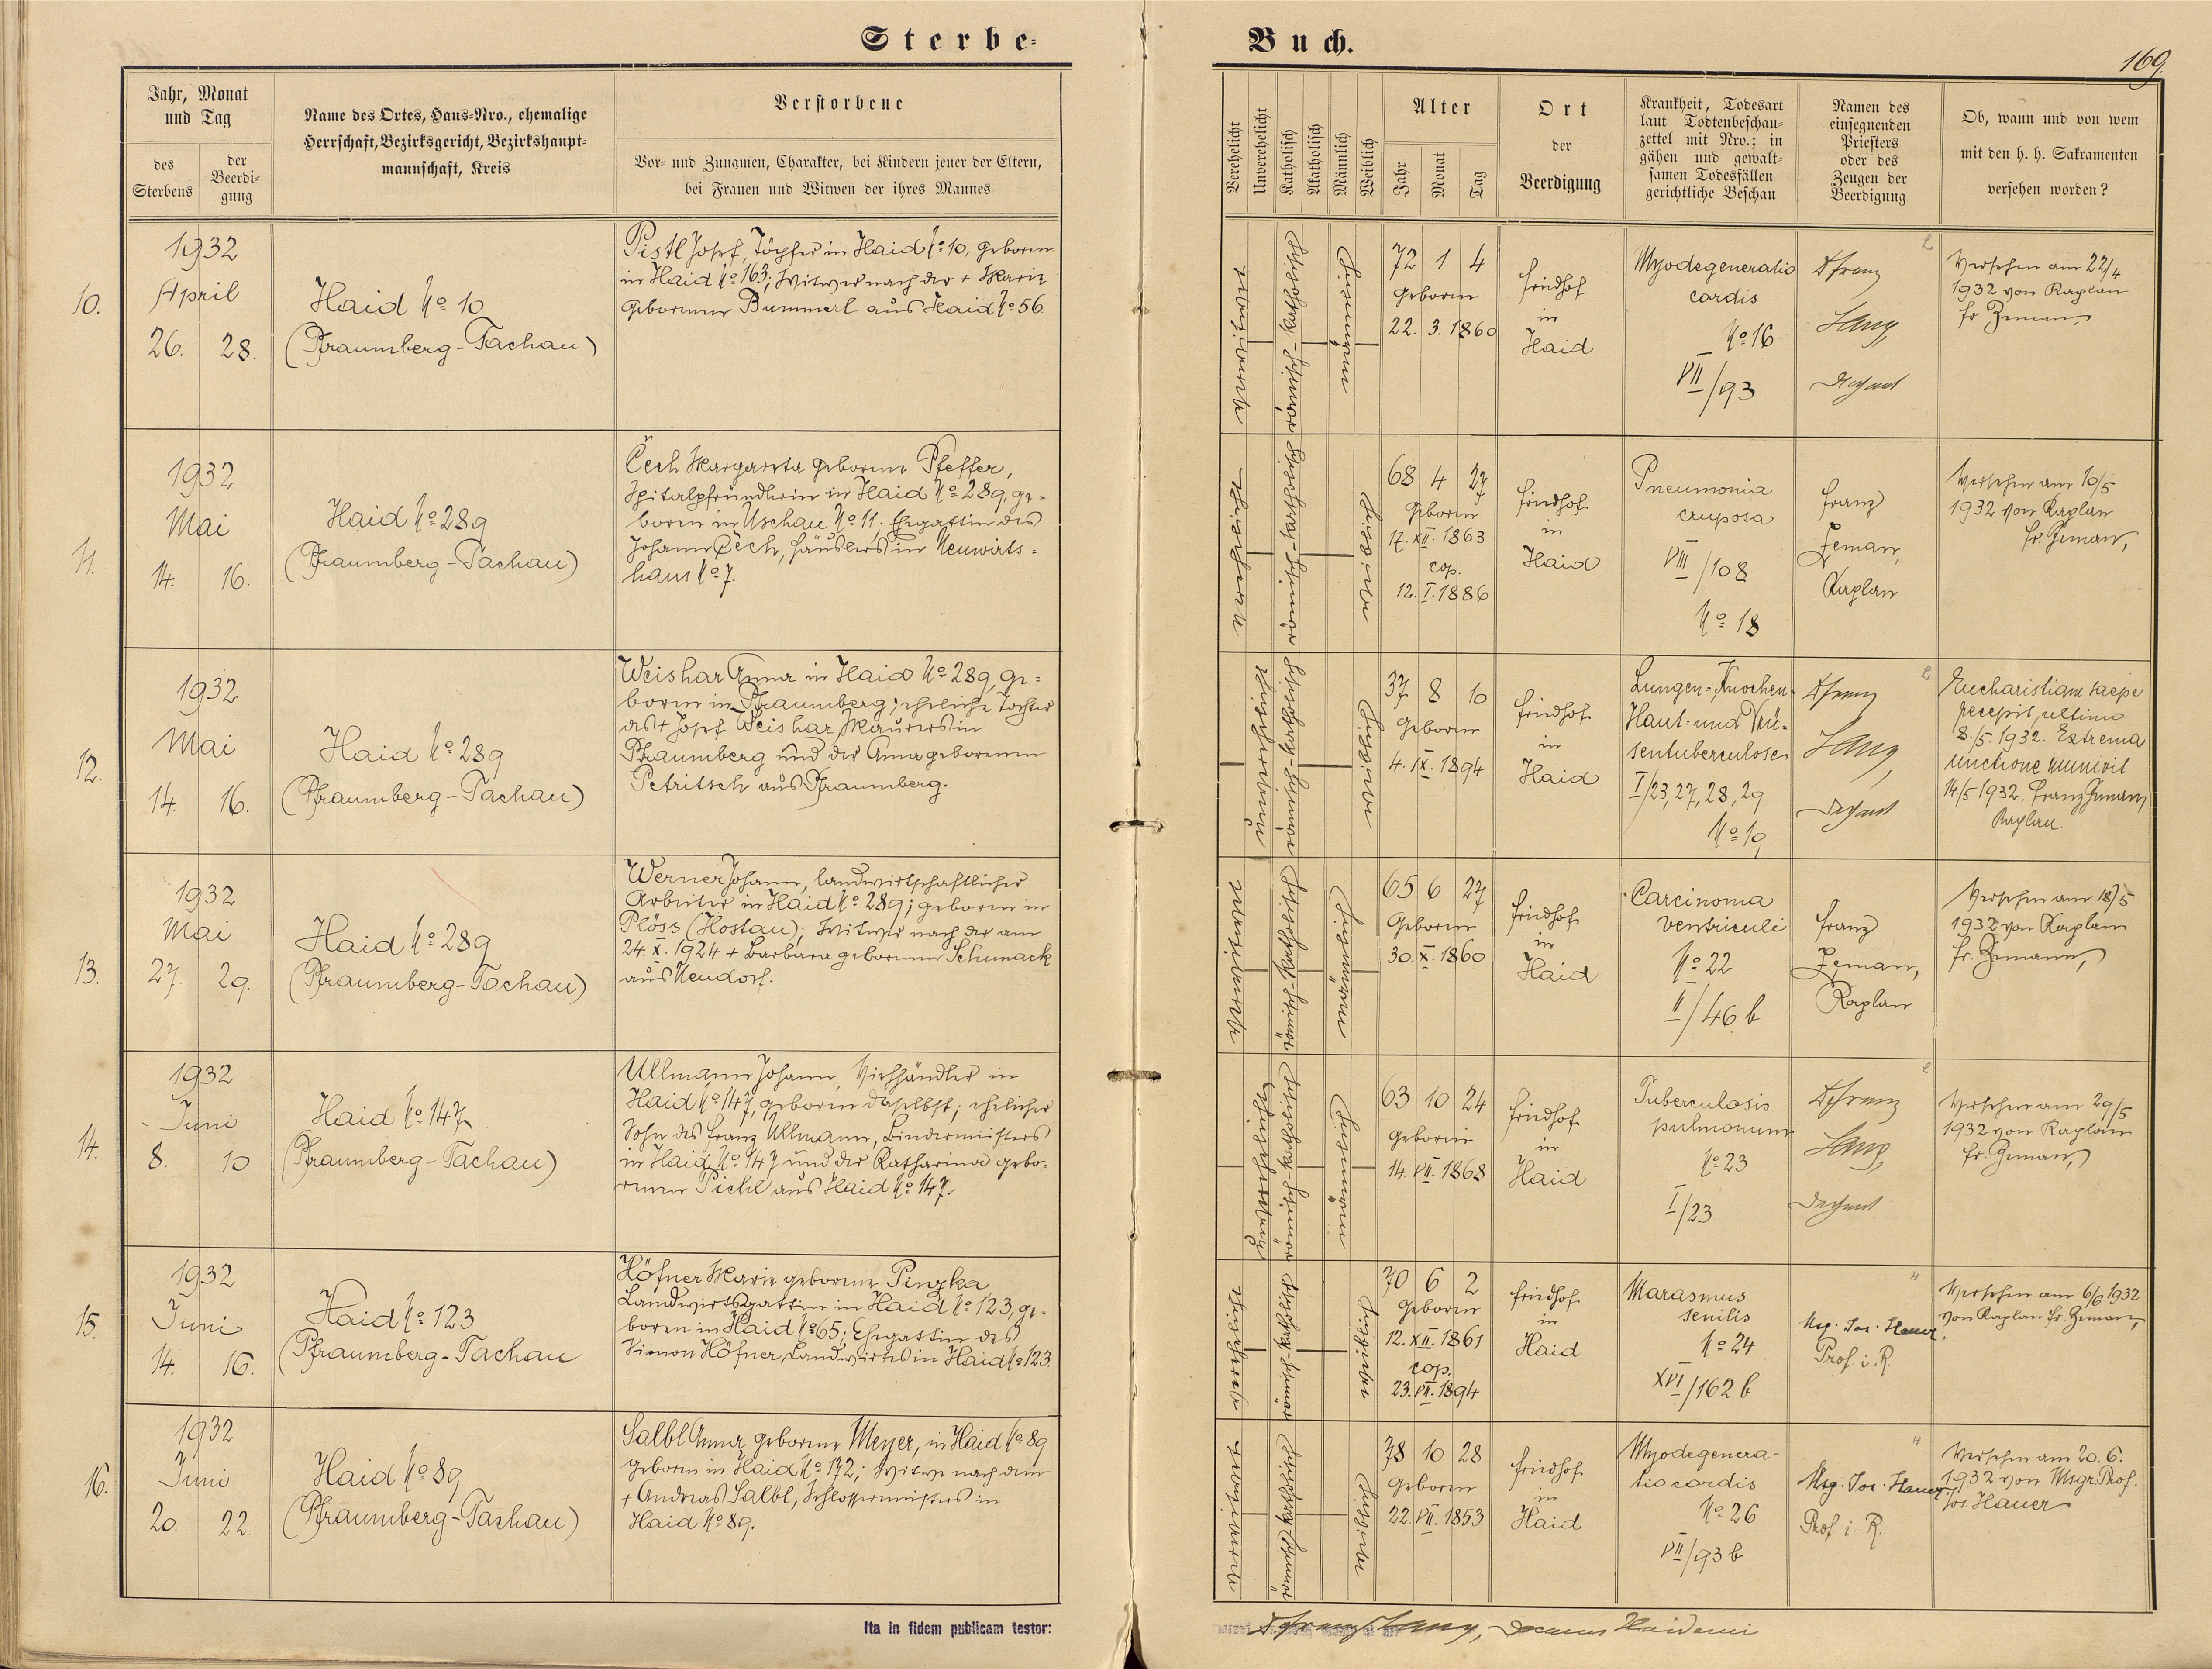 Sterbe-
Buch.
169.
Jahr, Monat
und Tag
des
Sterbens
der
Beerdi-
gung
Name des Ortes, Haus-Nro., ehemalige
Herrschaft, Bezirksgericht, Bezirkshaupt-
mannschaft, Kreis
Verstorbene
Vor- und Zunamen, Charakter, bei Kindern jener der Eltern,
bei Frauen und Witwen der ihres Mannes
Verehelicht
Unverehelicht
Katholisch
Akatholisch
Männlich
Weiblich
Alter
Jahr
Monat
Tag
Ort
der
Beerdigung
Krankheit, Todesart
laut Todtenbeschau-
zettel mit Nro.; in
gähen und gewalt-
samen Todesfällen
gerichtliche Beschau
Namen des
einsegnenden
Priesters
oder des
Zeugen der
Beerdigung
Ob, wann und von wem
mit den h. h. Sakramenten
versehen worden?
10.
1932
April
26. 28.
Haid No 10
(Pfraumberg-Tachau)
Pistl Josef, Töpfer in Haid No 10, geboren
in Haid No 163; Witwer nach der + Marie
geborenen Bummerl aus Haid No 56.
verwitwet
römisch-katholisch
männlich
72 1 4
geboren
22. 3. 1860
Friedhof
in
Haid
Myodegeneratio
cordis
No 16
VII/93
Franz
Lang,
Dechant
Versehen am 22/4
1932 von Kaplan
Fr. Zeman,
11.
1932
Mai
14. 16.
Haid No 289
(Pfraumberg-Tachau)
Čech Margareta geborene Pfeffer,
Spitalpfründlerin in Haid No 289, ge-
boren in Uschau No 11; Ehegattin des
Johann Čech, Häuslers in Neuwirts-
haus No 7.
verehelicht
römisch-katholisch
weiblich
68 4 27
geboren
17. XII. 1863
cop.
12. I. 1886
Friedhof
in
Haid
Pneumonia
cruposa
VIII/108
No 18
Franz
Zeman,
Kaplan
Versehen am 10/5
1932 von Kaplan
Fr. Zeman,
12.
1932
Mai
14. 16.
Haid No 289
(Pfraumberg-Tachau)
Weishar Anna in Haid No 289, ge-
boren in Pfraumberg; eheliche Tochter
des + Josef Weishar, Maurers in
Pfraumberg und der Anna geborenen
Petritsch aus Pfraumberg.
unverehelicht
römisch-katholisch
weiblich
37 8 10
geboren
4. IX. 1894
Friedhof
in
Haid
Lungen-, Knochen-
Haut- und Drü-
sentuberculose
I/23, 27, 28, 29
No 19
Franz
Lang,
Dechant
Eucharistiam saepe
percepit, ultimo
8./5. 1932. Extrema
unctione munivit
14./5 1932. Franz Zeman,
Kaplan.
13.
1932
Mai
27. 29.
Haid No 289
(Pfraumberg-Tachau)
Werner Johann, landwirtschaftlicher
Arbeiter in Haid No 289; geboren in
Plöss (Hostau); Witwer nach der am
24. X. 1924 + Barbara geborenen Schunack
aus Neudorf.
verwitwet
römisch-katholisch
männlich
65 6 27
Geboren
30. X. 1860
Friedhof
in
Haid
Carcinoma
ventriculi
No 22
II/46 b
Franz
Zeman,
Kaplan
Versehen am 18/5
1932 von Kaplan
Fr. Zemann,
14.
1932
Juni
8. 10
Haid No 147
(Pfraumberg-Tachau)
Ullmann Johann, Viehhändler in
Haid No 147, geboren daselbst; ehelicher
Sohn des Franz Ullmann, Bindermeisters
in Haid No 147 und der Katharina gebo-
renen Pichl aus Haid No 147.
unverehelicht
römisch-katholisch
männlich
63 10 24
geboren
14. VII. 1868
Friedhof
in
Haid
Tuberculosis
pulmonum
No 23
I/23
Franz
Lang,
Dechant
Versehen am 29/5
1932 von Kaplan
Fr. Zeman,
15.
1932
Juni
14. 16.
Haid No 123
(Pfraumberg-Tachau
Höfner Marie geborene Pinzka
Landwirtsgattin in Haid No 123, ge-
boren in Haid No 65; Ehegattin des
Simon Höfner, Landwirtes in Haid No 123.
verehelicht
römisch-katholisch
weiblich
70 6 2
geboren
12. XII. 1861
cop.
23. VII. 1894
Friedhof
in
Haid
Marasmus
senilis
No 24
XVI/162 b
Msg. Jos. Hauer,
Prof. i. R.
Versehen am 6/6 1932
von Kaplan Fr. Zeman,
16.
1932
Juni
20. 22.
Haid No 89
(Pfraumberg-Tachau)
Salbl Anna, geborene Meyer, in Haid No 89
geboren in Haid No 172; Witwe nach dem
+ Andreas Salbl, Schlossermeisters in
Haid No 89.
verwitwet
römisch-katholisch
weiblich
78 10 28
geboren
22. VII. 1853
Friedhof
in
Haid
Myodegenera-
tio cordis
No 26
VII/93 b
Msg. Jos. Hauer
Prof. i. R.
Versehen am 20. 6.
1932 von Msgr. Prof.
Jos. Hauer
Ita in fidem publicam testor:
Franz Lang, Decanus